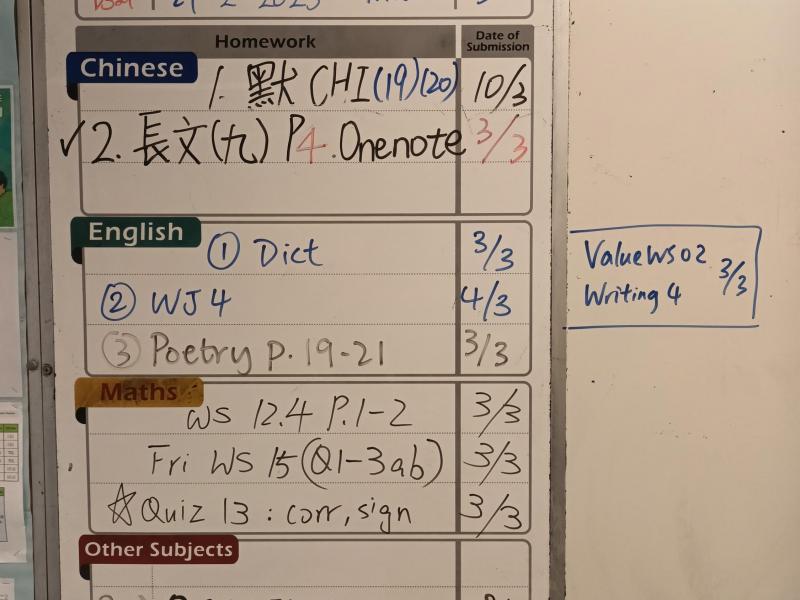 21 2 2025
Homework Date of Submission
Chinese
1. 默 CHI (19)(20) 10/3
✓2. 長文(九) P4. Onenote 3/3
English
① Dict 3/3
② WJ 4 4/3
③ Poetry p. 19-21 3/3
Value WS 02 3/3
Writing 4
Maths
WS 12.4 P.1-2 3/3
Fri WS 15 (Q1-3ab) 3/3
☆ Quiz 13 : corr, sign 3/3
Other Subjects